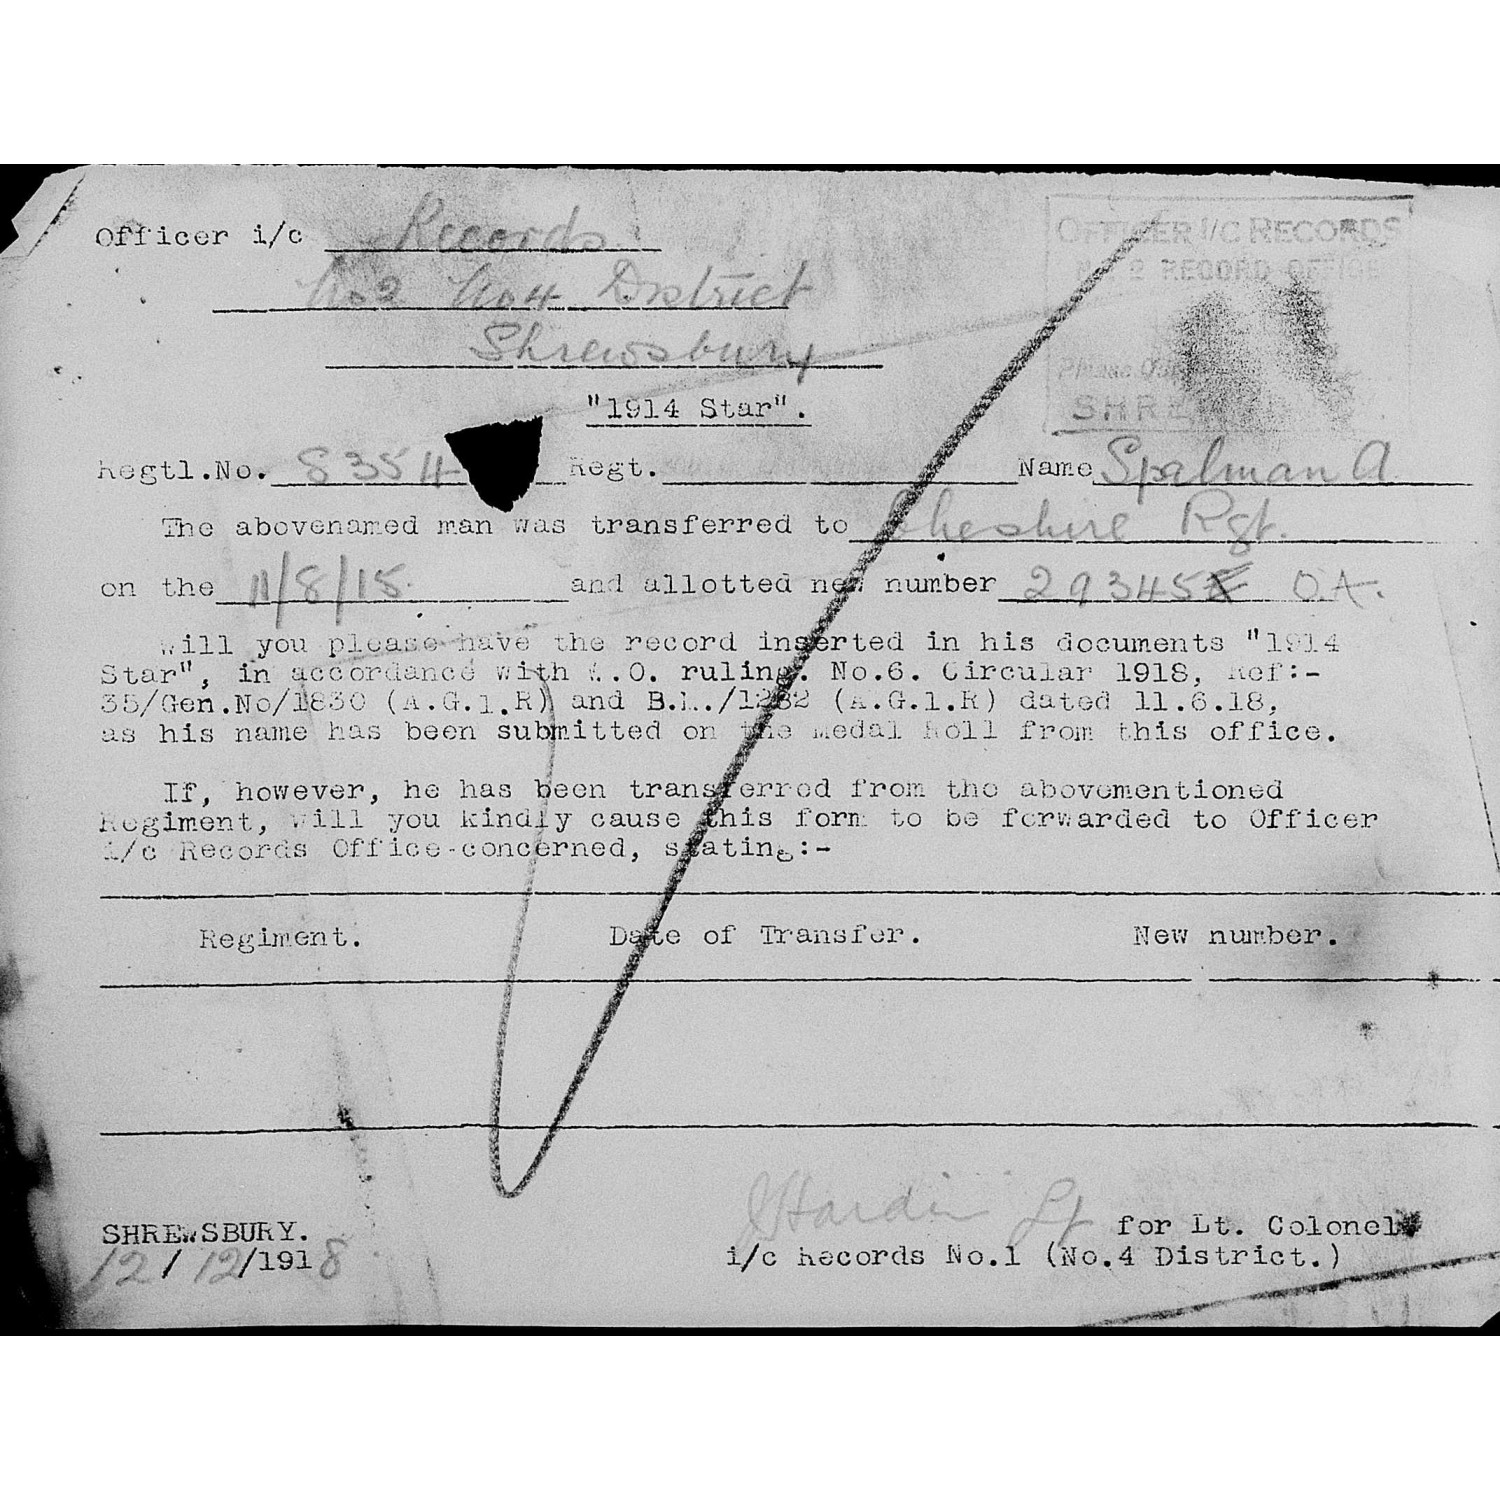 Officer i/c Records
No 2 No 4 District
Shrewsbury
OFFICER I/C RECORDS
No 2 RECORD OFFICE
SHRE
"1914 Star".
Regtl.No. 8354 Regt. Name Spalman A
The abovenamed man was transferred to Cheshire Rgt.
on the 11/8/15. and allotted new number 29345 O.A.
Will you please have the record inserted in his documents "1914
Star", in accordance with W.O. ruling. No.6. Circular 1918, Ref:-
35/Gen.No/1830 (A.G.1.R) and B.L./1282 (A.G.1.R) dated 11.6.18,
as his name has been submitted on the Medal Roll from this office.
If, however, he has been transferred from the abovementioned
Regiment, will you kindly cause this form to be forwarded to Officer
i/c Records Office concerned, stating:-
Regiment. Date of Transfer. New number.
SHREWSBURY. for Lt. Colonel
12/12/1918 i/c Records No.1 (No.4 District.)